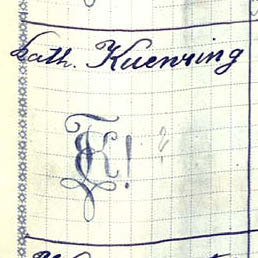 kath. Kuenring
K! ?